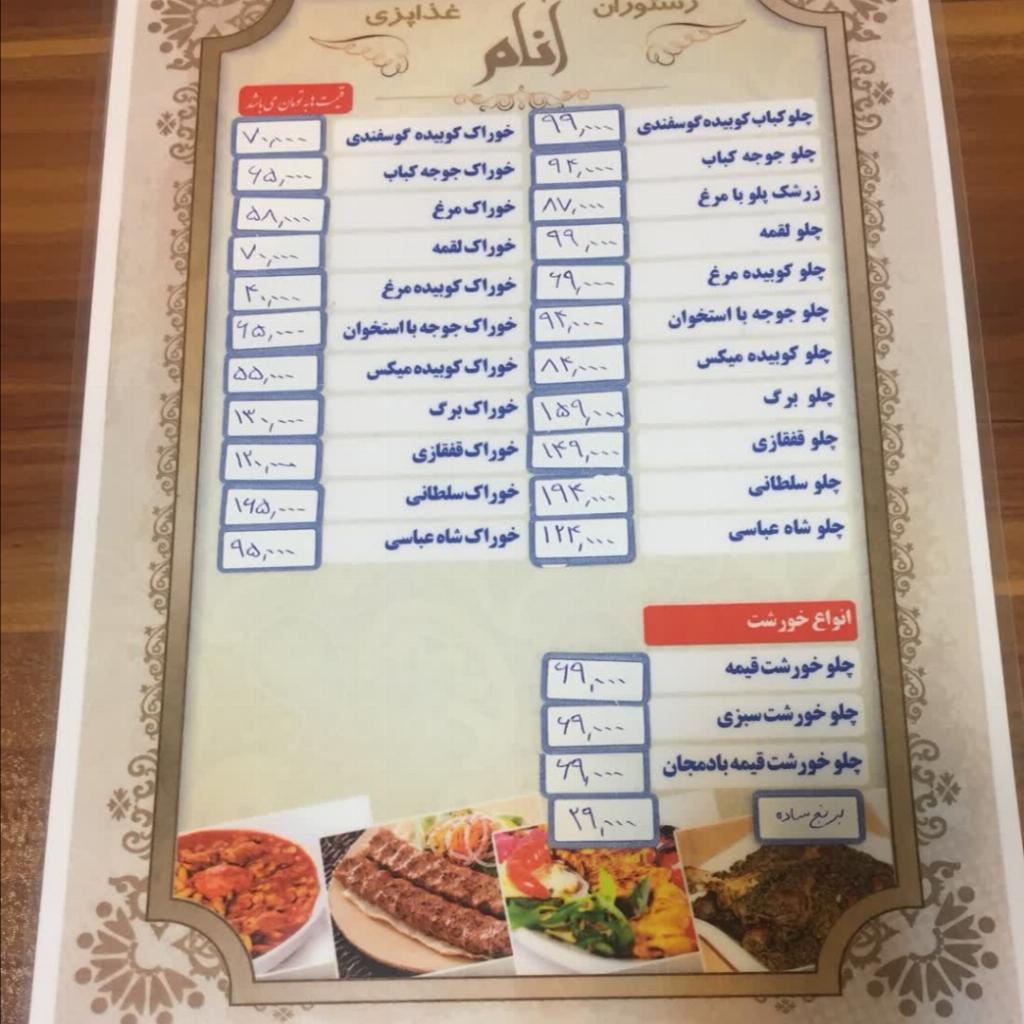 رستوران
غذاپزی
انام
قیمت ها به تومان می باشد
چلو کباب کوبیده گوسفندی ۹۹,۰۰۰
چلو جوجه کباب ۹۴,۰۰۰
زرشک پلو با مرغ ۸۷,۰۰۰
چلو لقمه ۹۹,۰۰۰
چلو کوبیده مرغ ۶۹,۰۰۰
چلو جوجه با استخوان ۹۴,۰۰۰
چلو کوبیده میکس ۸۴,۰۰۰
چلو برگ ۱۵۹,۰۰۰
چلو قفقازی ۱۴۹,۰۰۰
چلو سلطانی ۱۹۴,۰۰۰
چلو شاه عباسی ۱۲۴,۰۰۰
خوراک کوبیده گوسفندی ۷۰,۰۰۰
خوراک جوجه کباب ۶۵,۰۰۰
خوراک مرغ ۵۸,۰۰۰
خوراک لقمه ۷۰,۰۰۰
خوراک کوبیده مرغ ۴۰,۰۰۰
خوراک جوجه با استخوان ۶۵,۰۰۰
خوراک کوبیده میکس ۵۵,۰۰۰
خوراک برگ ۱۳۰,۰۰۰
خوراک قفقازی ۱۲۰,۰۰۰
خوراک سلطانی ۱۶۵,۰۰۰
خوراک شاه عباسی ۹۵,۰۰۰
انواع خورشت
چلو خورشت قیمه ۶۹,۰۰۰
چلو خورشت سبزی ۶۹,۰۰۰
چلو خورشت قیمه بادمجان ۶۹,۰۰۰
برنج ساده ۲۹,۰۰۰